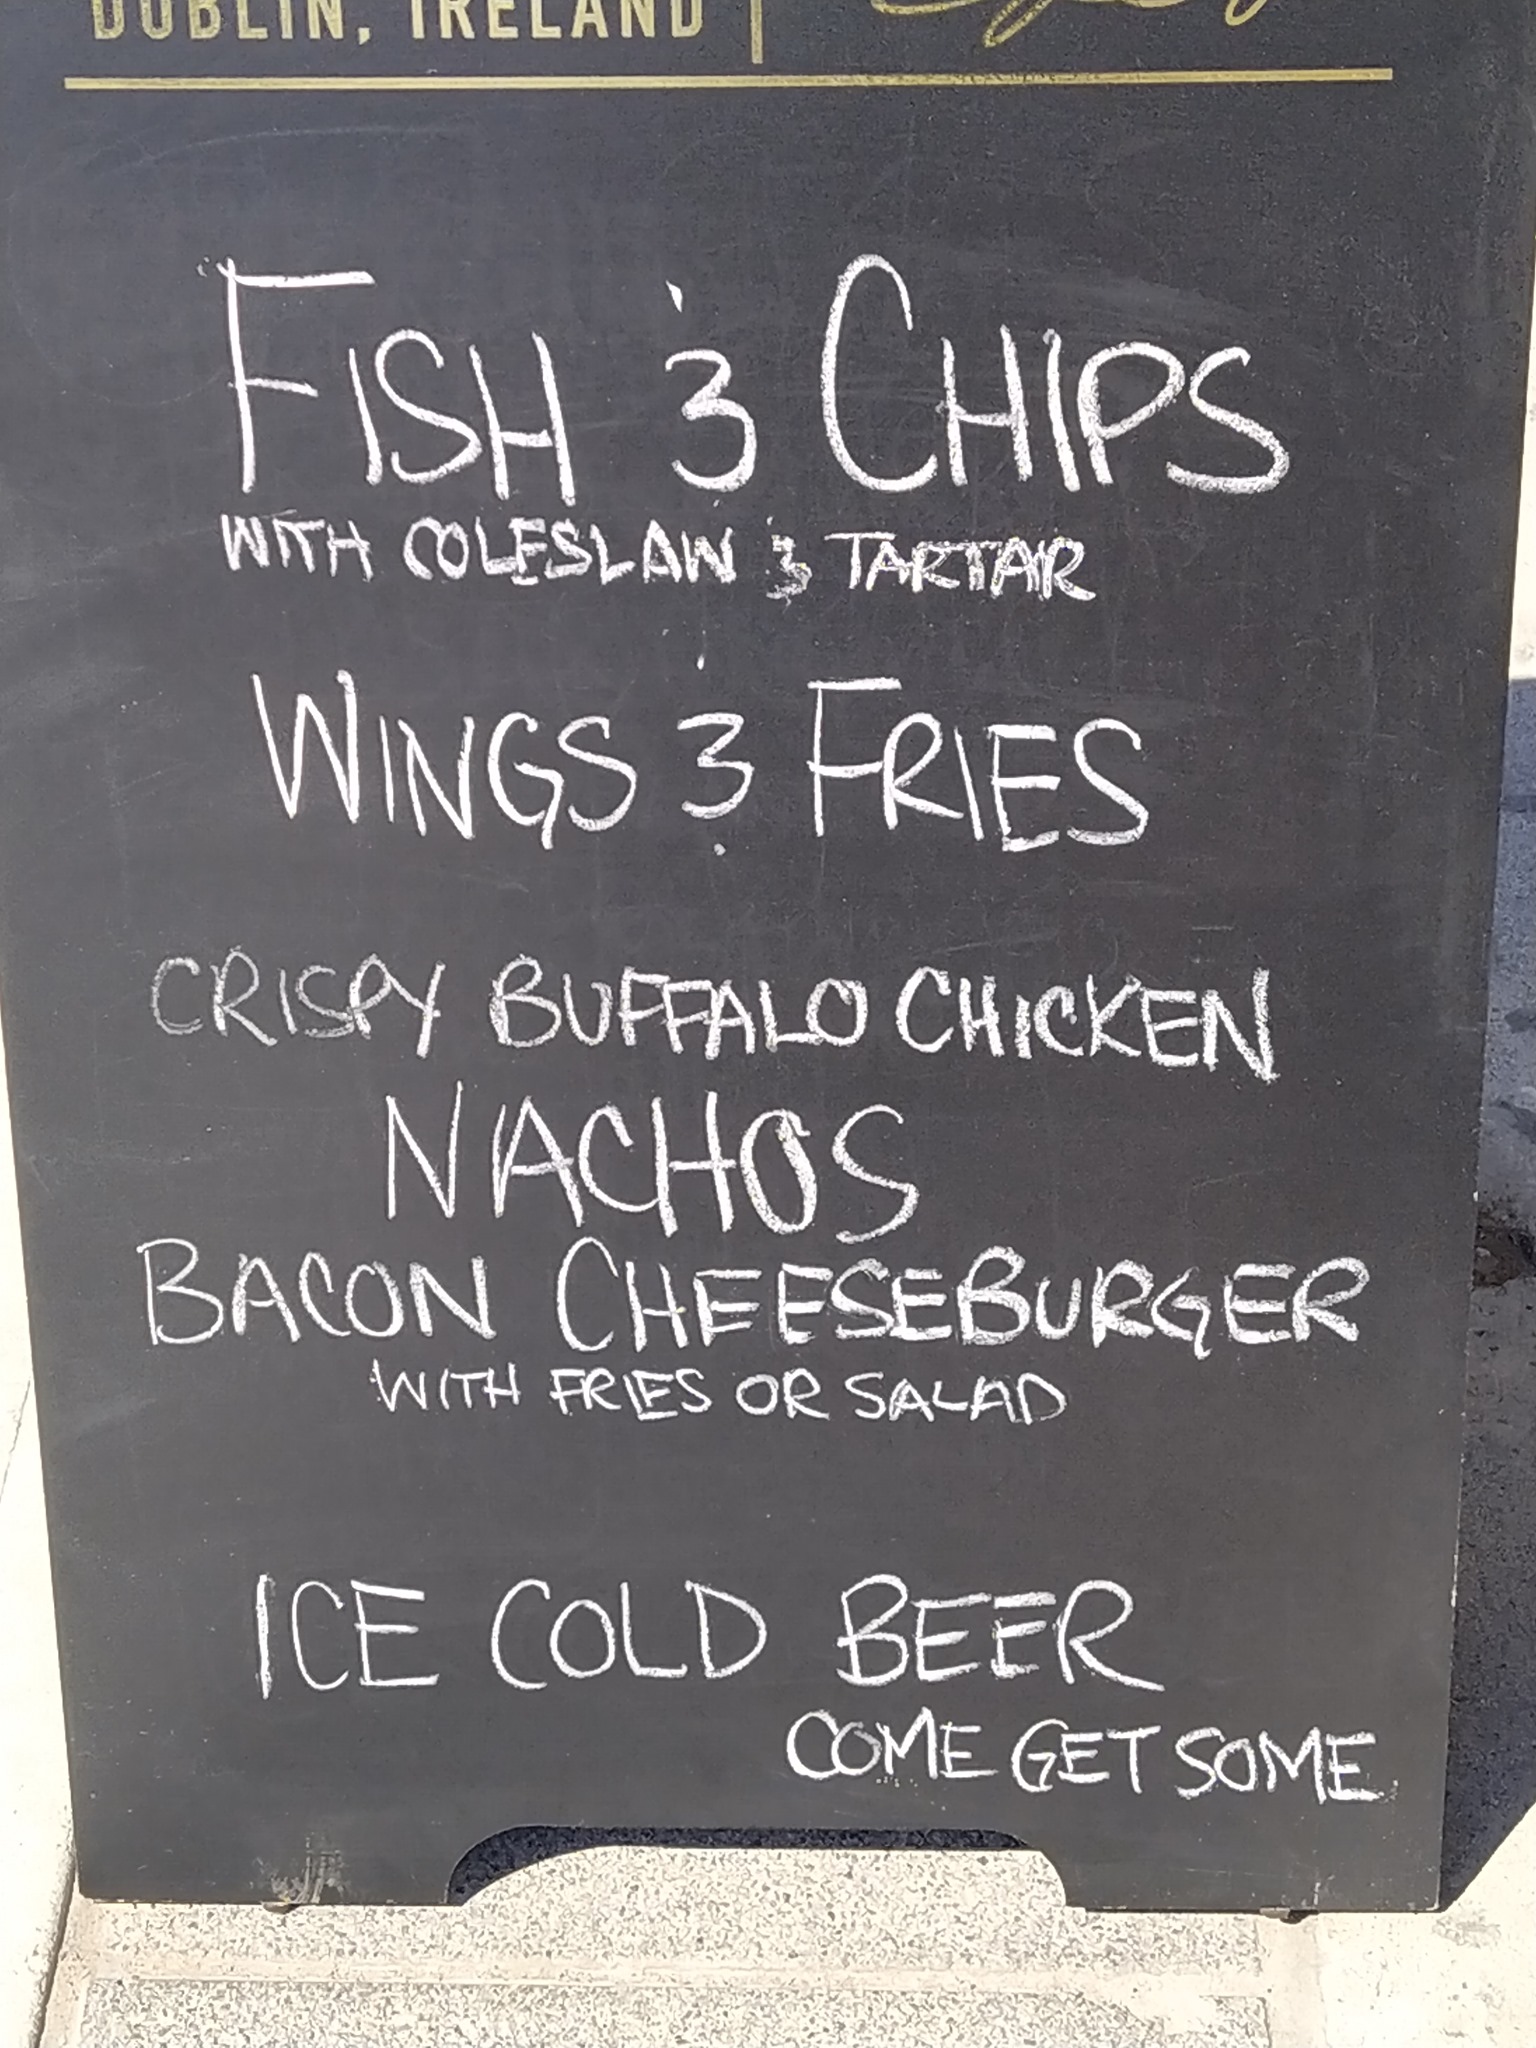 DUBLIN, IRELAND
FISH & CHIPS
WITH COLESLAW & TARTAR
WINGS & FRIES
CRISPY BUFFALO CHICKEN
NACHOS
BACON CHEESEBURGER
WITH FRIES OR SALAD
ICE COLD BEER
COME GET SOME